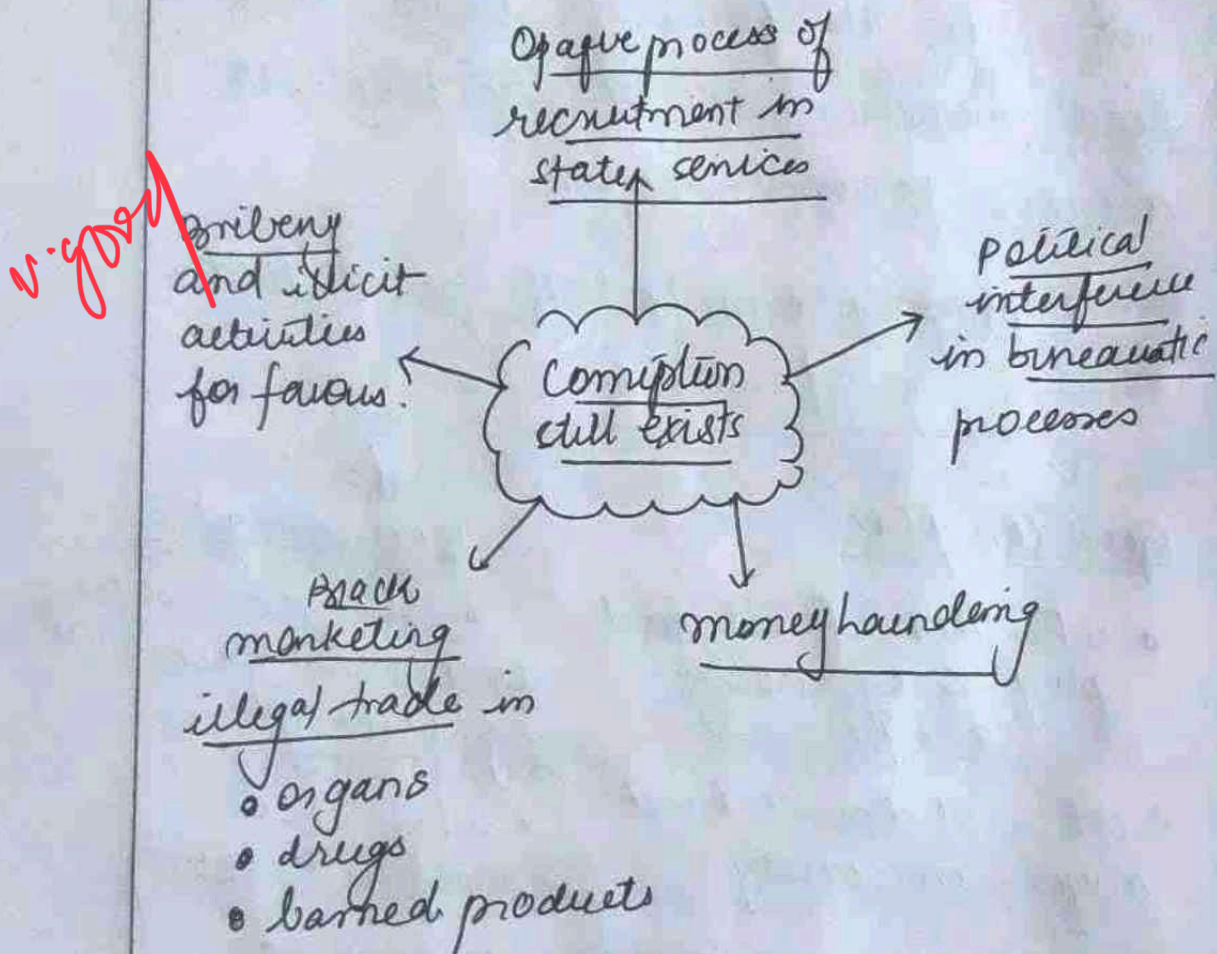 Opaque process of
recruitment in
state services
v.good
Bribery
and illicit
activities
for favours.
Political
interference
in bureaucratic
processes
Corruption
still exists
Black
marketing
illegal trade in
• organs
• drugs
• banned products
money laundering